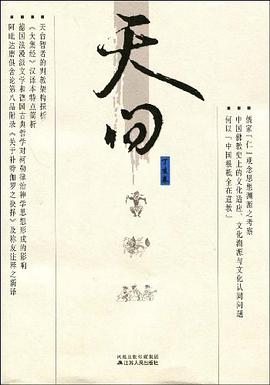 天问
丁亥卷
儒家“仁”观念思想渊源之考察
中国佛教史上的文化适应、文化溯源与文化认同问题
何以“中国根柢全在道教”
天台智者的判教架构探析
《大集经》汉译本特点简析
德国浪漫派文学和德国古典哲学对柯勒律治神学思想形成的影响
阿毗达磨俱舍论第八品附录《关于补特伽罗之抉择》及称友注释之翻译
凤凰出版传媒集团
江苏人民出版社